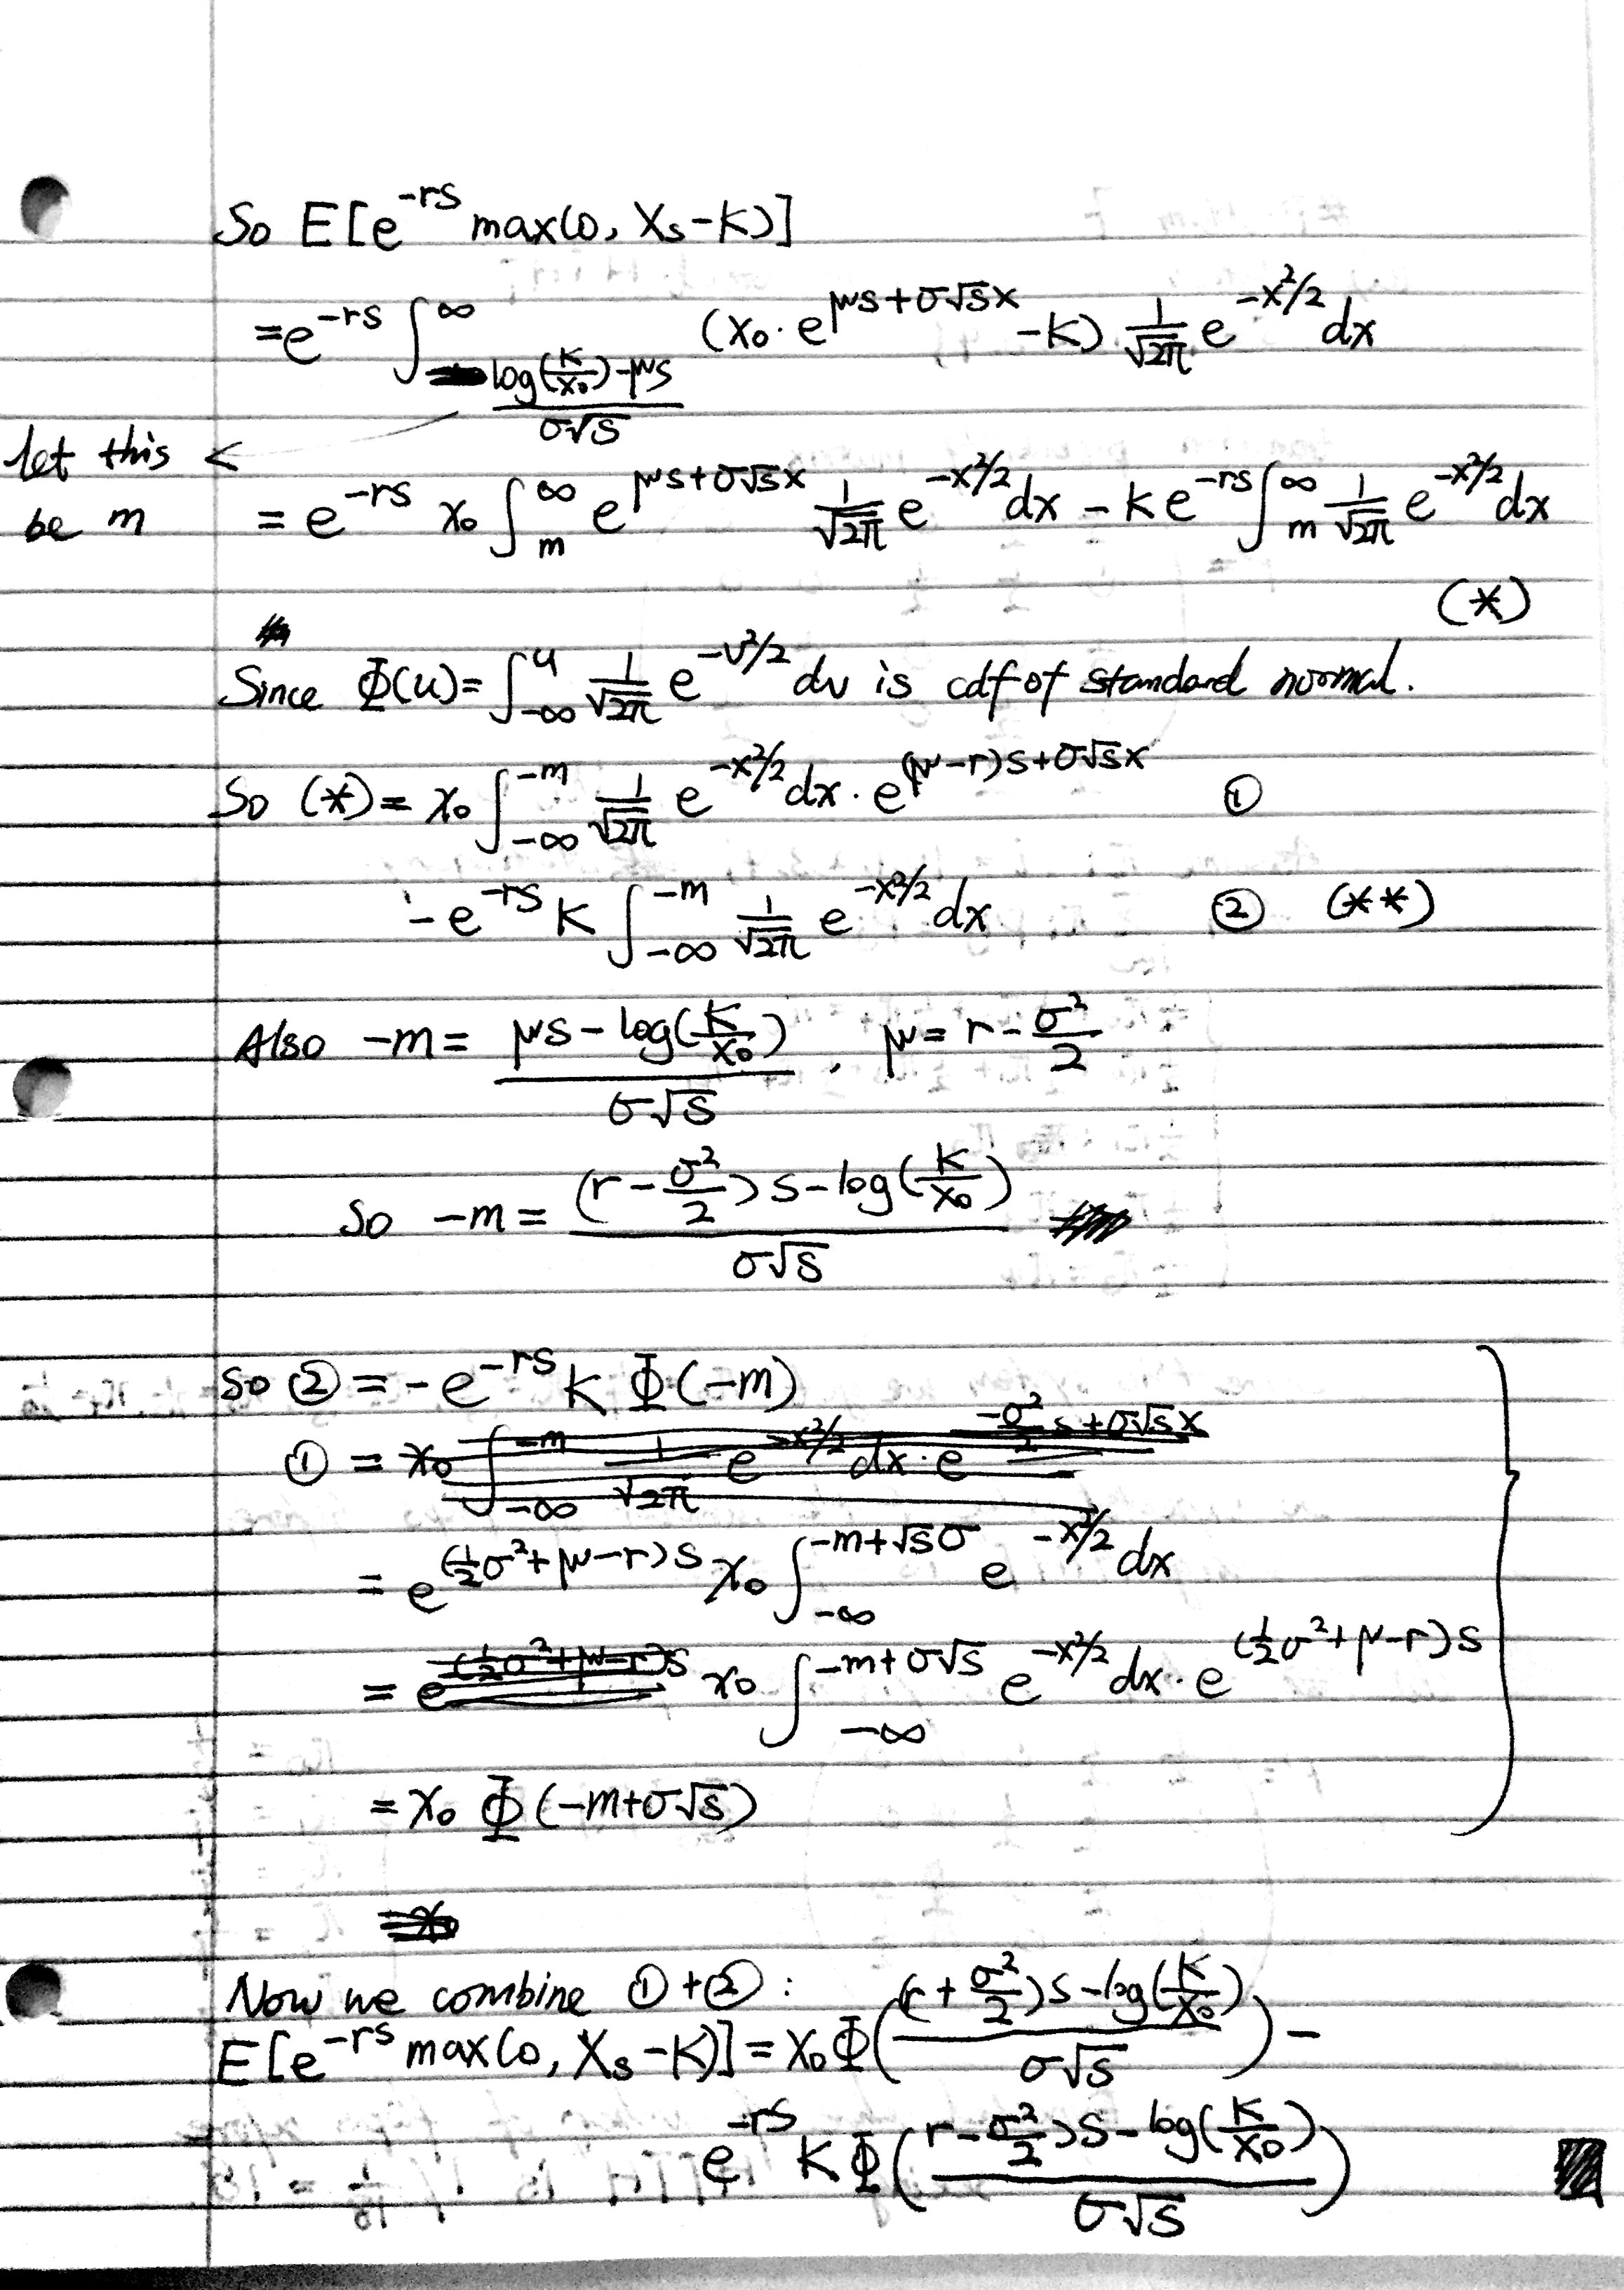 So E[e^{-rs} max(0, X_s - K)]
= e^{-rs} ∫_{(log(K/x₀) - μs)/(σ√s)}^{∞} (x₀ · e^{μs+σ√s x} - K) 1/√(2π) e^{-x²/2} dx
let this
be m
= e^{-rs} x₀ ∫_m^∞ e^{μs+σ√s x} 1/√(2π) e^{-x²/2} dx - K e^{-rs} ∫_m^∞ 1/√(2π) e^{-x²/2} dx
(*)
Since Φ(u) = ∫_{-∞}^u 1/√(2π) e^{-v²/2} dv is cdf of standard normal.
So (*) = x₀ ∫_{-∞}^{-m} 1/√(2π) e^{-x²/2} dx · e^{(μ-r)s+σ√s x} ①
- e^{-rs} K ∫_{-∞}^{-m} 1/√(2π) e^{-x²/2} dx ② (**)
Also -m = (μs - log(K/x₀))/(σ√s), μ = r - σ²/2
So -m = ((r - σ²/2)s - log(K/x₀))/(σ√s)
So ② = - e^{-rs} K Φ(-m)
① = x₀ ∫_{-∞}^{-m} 1/√(2π) e^{-x²/2} dx · e^{-σ²/2 s+σ√s x}
= e^{(½σ²+μ-r)s} x₀ ∫_{-∞}^{-m+√s σ} e^{-x²/2} dx
= e^{(½σ²+μ-r)s} x₀ ∫_{-∞}^{-m+σ√s} e^{-x²/2} dx · e^{(½σ²+μ-r)s}
= x₀ Φ(-m+σ√s)
Now we combine ①+②:
E[e^{-rs} max(0, X_s - K)] = x₀ Φ(((r + σ²/2)s - log(K/x₀))/(σ√s)) -
e^{-rs} K Φ((r - σ²/2)s - log(K/x₀))/(σ√s))